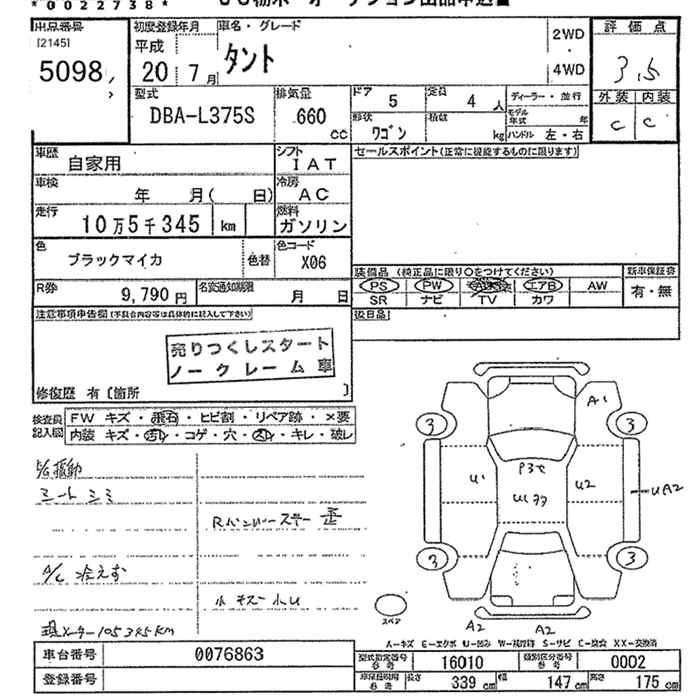 *0022738*
出品番号
[2145]
5098
初度登録年月
平成
20 7月
車名・グレード
タント
2WD
4WD
評価点
3.5
外装 内装
C C
型式
DBA-L375S
排気量
660
cc
ドア 5
定員 4 人
ディーラー・並行
形状 ワゴン
積載 kg
モデル年式 年
ハンドル 左・右
車歴 自家用
シフト IAT
セールスポイント(正常に機能するものに限ります)
車検 年 月( 日)
冷房 AC
走行 10万5千345 km
燃料 ガソリン
色 ブラックマイカ
色替
色コード X06
装備品 (純正品に限り○をつけてください)
新車保証書
PS PW エアB AW
有・無
SR ナビ TV カワ
R券 9,790円
名変通知期限 月 日
後日品
注意事項申告欄(不具合内容等は具体的に記入して下さい)
売りつくしスタート
ノークレーム車
修復歴 有〔箇所 〕
検査員記入欄
FW キズ・飛石・ヒビ割・リペア跡・×要
内装 キズ・汚れ・コゲ・穴・スレ・キレ・破レ
シートシミ
Rバンパーステー歪
A/C 冷えず
現メーター105345km
A1
3 3
U1
U2
UA2
3 3
スペア
A2 A2
A-キズ E-エクボ U-凹み W-補修跡 S-サビ C-腐食 XX-交換済
車台番号 0076863
型式指定番号 参考 16010
類別区分番号 参考 0002
登録番号
車検証記載 参考 長さ 339 cm 幅 147 cm 高さ 175 cm